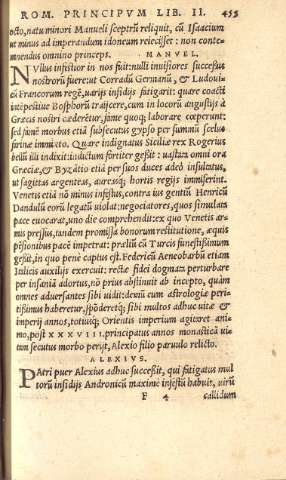 ROM. PRINCIPVM LIB. II. 455
octo, natu minori Manueli sceptrũ reliquit, cũ Isaacium
ut minus ad imperandum idoneum reiecisset: non conte
mnendus omnino princeps. MANVEL.
NVllus infestior in nos fuit: nulli imustiores successus
nostrorũ fuere: ut Corradũ Germanũ, & Ludoui
cũ Francorum regẽ, uarijs insidijs fatigarit: quare coacti
intẽpestiue Bosphorũ traijcere, cum in locorũ angustijs à
Græcis nostri cæderẽtur, fame quoq; laborare cœperunt:
sed fumẽ morbus etiã subsecutus gypso per summũ scelus
farinæ immixto. Quare indignatus Siciliæ rex Rogerius
bellũ illi indixit: indictum fortiter gessit: uastãs omni ora
Græciã, & Byzãtio etiã per suos duces adeò insultatus,
ut sagittas argenteas, aureasq; hortis regijs immiserint.
Venetis etiã nõ minus infestus, contra ius gentiũ Henricũ
Dandulũ eorũ legatũ uiolat: negotiatores, quos simulata
pace euocarat, uno die comprehendit: ex quo Venetis ar
mis pressus, tandem promissa bonorum restitutione, à quis
pẽsionibus pacẽ impetrat: præliũ cũ Turcis funestissimum
gessit, in quo penè captus est. Federicũ Aeneobarbũ etiam
Italicis auxilijs exercuit: rectæ fidei dogmata perturbare
per insaniã adortus, nõ prius abstinuit ab incepto, quàm
omnes aduersantes sibi uidit: deniũ cum astrologiæ peri
tissimus haberetur, spõderetq; sibi multos adhuc uitæ &
imperij annos, totiusq; Orientis imperium agitaret ani-
mo, post XXXVIII. principatus annos monastica ui
tam secutus morbo perijt, Alexio filio paruulo relicto.
ALEXIVS.
PAtri puer Alexius adhuc successit, qui fatigatus mul
torũ insidijs Andronicũ maximè infestũ habuit, uirũ
F 4 callidum